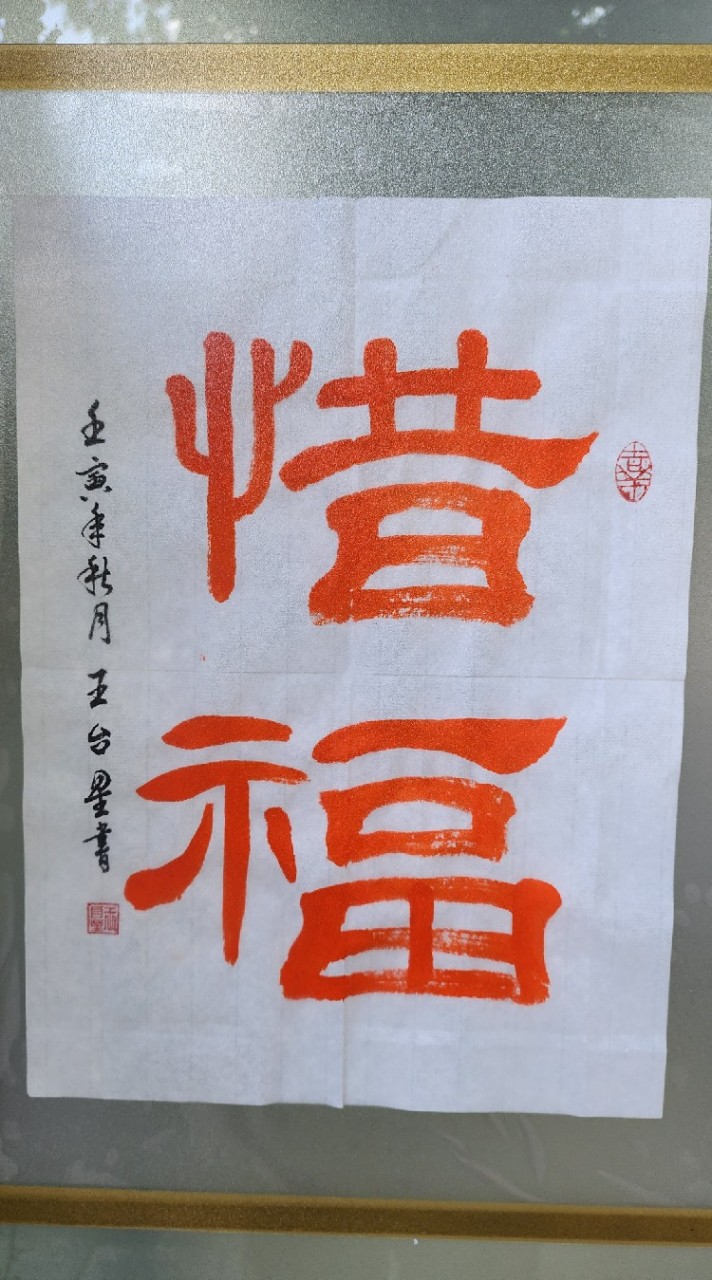 惜福
壬寅年秋月 王台星書